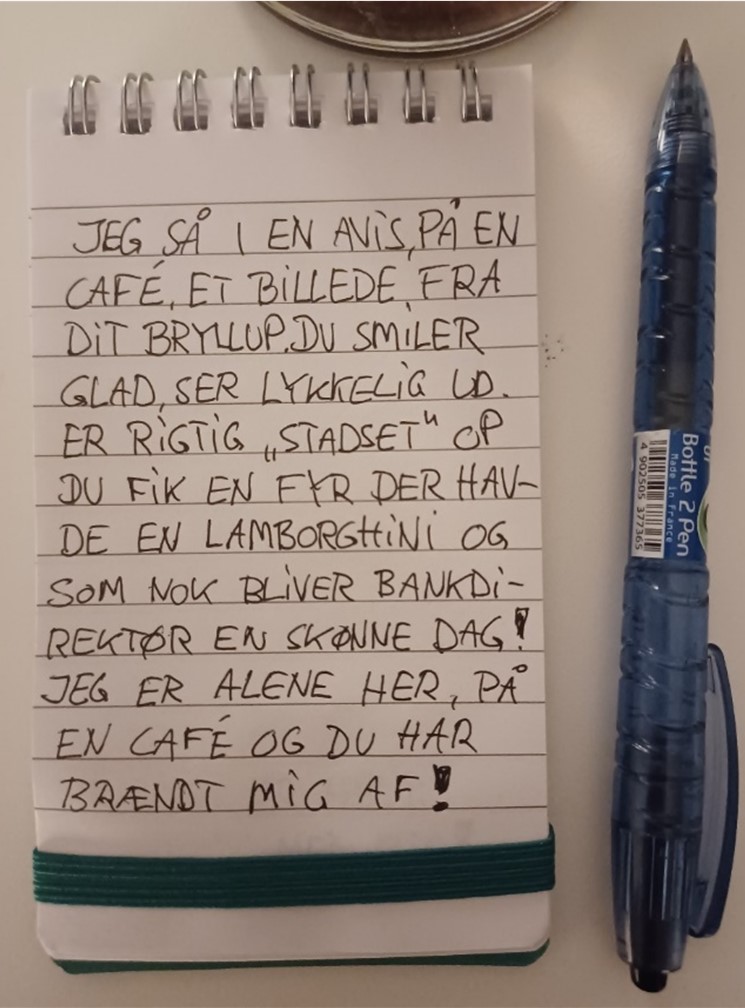 JEG SÅ I EN AVIS, PÅ EN
CAFÉ, ET BILLEDE, FRA
DIT BRYLLUP. DU SMILER
GLAD, SER LYKKELIG UD.
ER RIGTIG „STADSET" OP
DU FIK EN FYR DER HAV-
DE EN LAMBORGHINI OG
SOM NOK BLIVER BANKDI-
REKTØR EN SKØNNE DAG!
JEG ER ALENE HER, PÅ
EN CAFÉ OG DU HAR
BRÆNDT MIG AF!
Bottle 2 Pen
Made in France
4 902505 377365